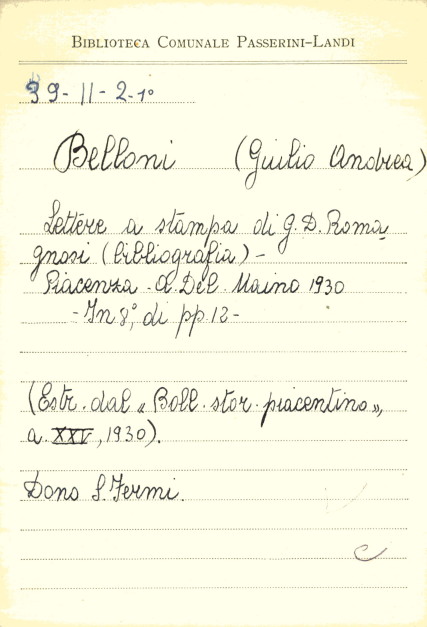 BIBLIOTECA COMUNALE PASSERINI-LANDI
39-11-2-1º
Belloni (Giulio Andrea)
Lettere a stampa di G. D. Roma
gnosi (bibliografia) -
Piacenza - A. Del Maino 1930
- In 8°, di pp. 12 -
(Estr. dal « Boll. stor. piacentino »,
a. XXV, 1930).
Dono S. Fermi.
C